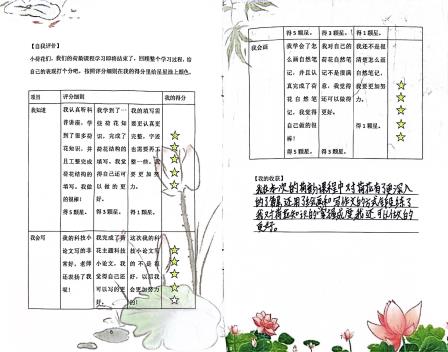 【自我评价】
小荷花们,我们的荷韵课程学习即将结束了,回顾整个学习过程,给
自己的表现打个分吧。按照评分细则在我的得分里给星星涂上颜色。
项目 评分细则 我的得分
我知道
我认真听科
普讲座,学
到了很多荷
花知识,并
且工整完成
荷花结构的
填写。我做
的很棒!
得5颗星。
我学到了一
些荷花知
识,完成了
荷花结构的
填写。我觉
得自己还可
以做的更
好。
得3颗星。
我的填写需
要更认真更
完整,字迹
也需要再工
整一些。我
要更加努
力。
得1颗星。
我会写
我的科技小
论文写的非
常好,老师
还表扬了我
呢!
我完成了荷
花主题科技
小论文,我
觉得自己还
可以写的更
好。
这次我的科
技小论文写
的不是很
好,以后我
会更加努力
的!
得5颗星。 得3颗星。 得1颗星。
我会画
我学会了怎
么画自然笔
记,并且认
真完成了荷
花自然笔
记,我觉得
自己做的很
棒!
得5颗星。
我对自己的
荷花自然笔
记不是很满
意,我觉得
还可以做得
更好。
得3颗星。
我还不是很
清楚怎么画
自然笔记,
我要更加努
力。
得1颗星。
【我的收获】
我在本次的荷韵课程中对荷花有了更深入
的了解,还用
我对荷花知识的掌握程度,我还可以做的
更好。